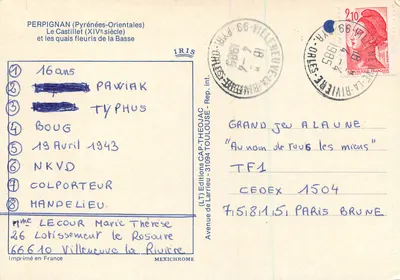 PERPIGNAN (Pyrénées-Orientales)
Le Castillet (XIVe siècle)
et les quais fleuris de la Basse
IRIS
1 16 ans
2 PAWIAK
3 TYPHUS
4 BOUG
5 19 Avril 1943
6 NKVD
7 COLPORTEUR
8 MANDELIEU
Mme LECOUR Marie Thérèse
26 Lotissement le Rosaire
66610 Villeneuve la Rivière
Imprimé en France
MEXICHROME
(LT) Editions CAP-THEOJAC
Avenue de Larrieu - 31094 TOULOUSE - Rep. int.
18 - 4
1985
66-PYR.-ORLES
2,10
LA-RIVIERE
18 - 4
1985
66-PYR.-ORLES
GRAND jeu A LA UNE
"Au nom de tous les miens"
TF1
CEDEX 1504
75815 PARIS BRUNE